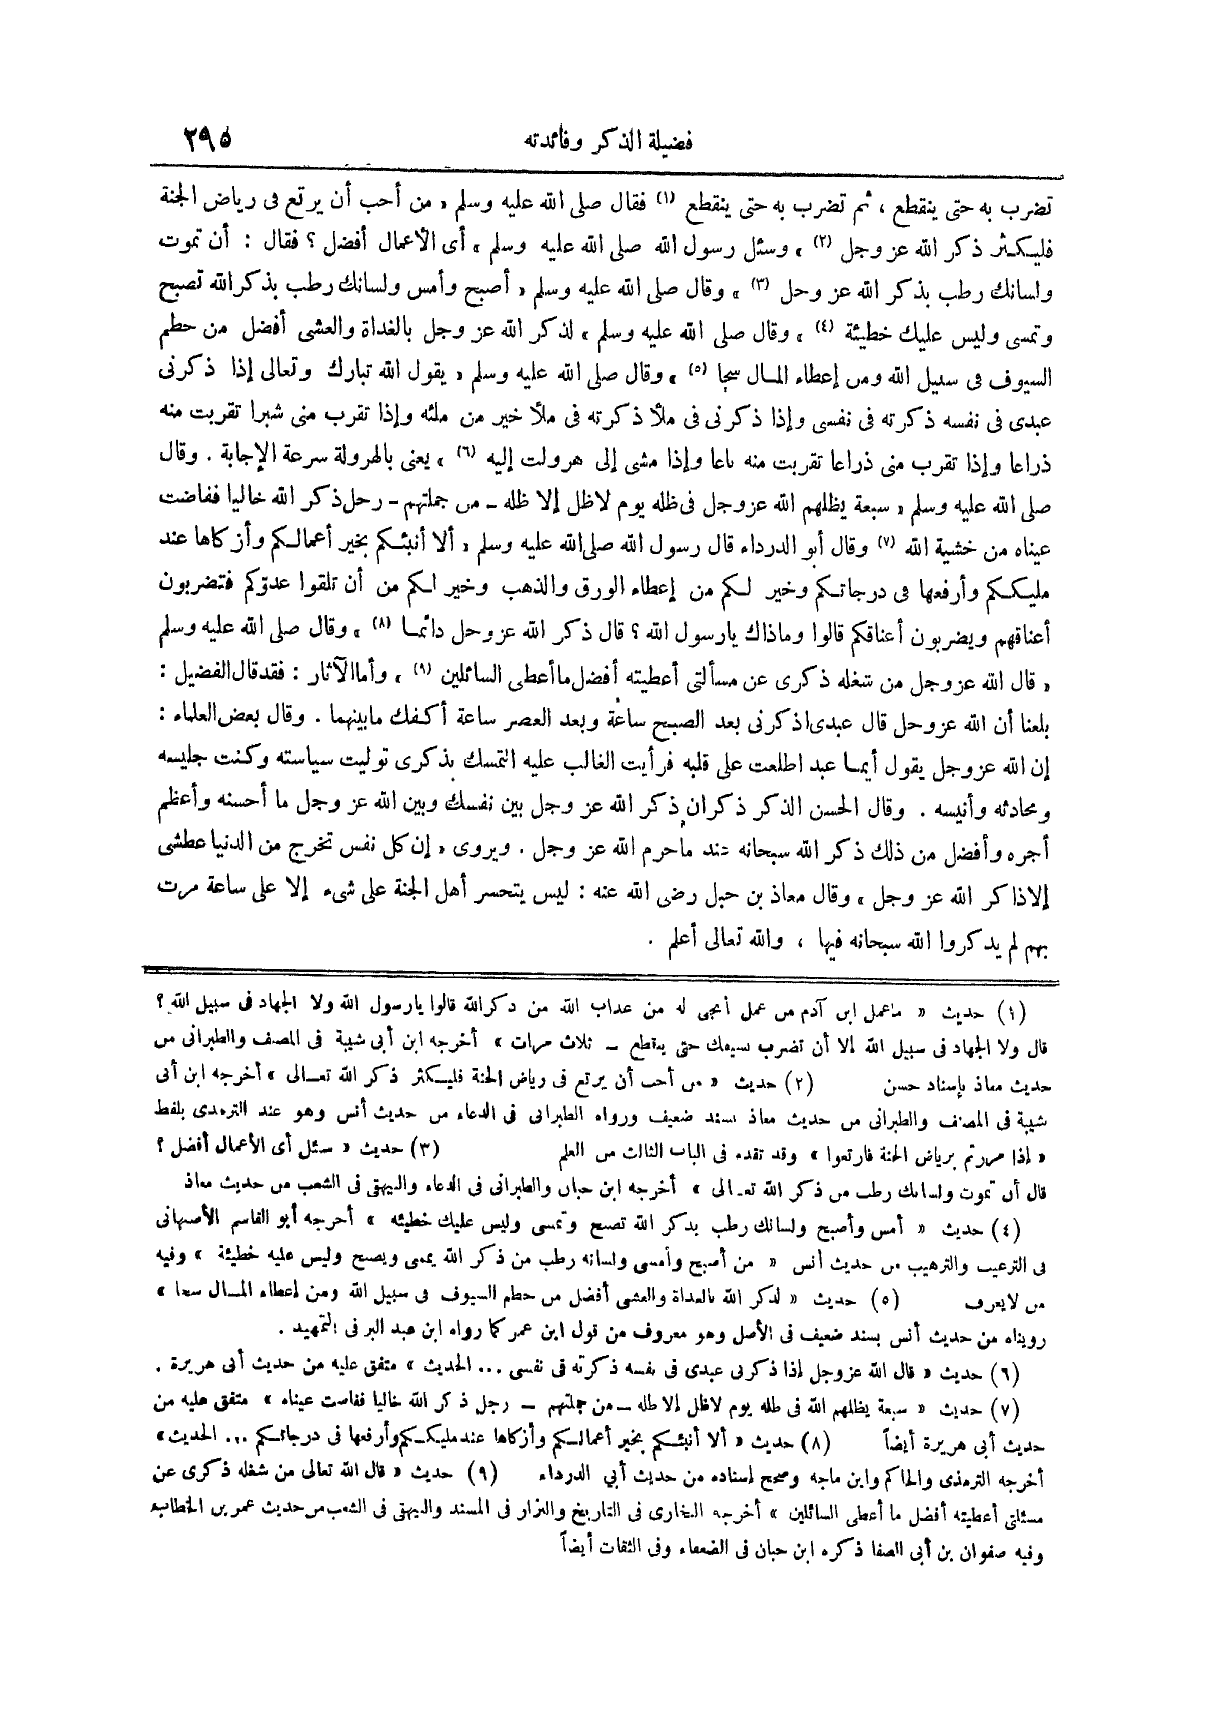 فضيلة الذكر وفائدته ٢٩٥
تضرب به حتى ينقطع ، ثم تضرب به حتى ينقطع (١) فقال صلى الله عليه وسلم « من أحب أن يرتع فى رياض الجنة
فليكثر ذكر الله عز وجل (٢) » وسئل رسول الله صلى الله عليه وسلم » أى الأعمال أفضل ؟ فقال : أن تموت
ولسانك رطب بذكر الله عز وجل (٣) » وقال صلى الله عليه وسلم « أصبح وأمس ولسانك رطب بذكر الله تصبح
وتمسى وليس عليك خطيئة (٤) » وقال صلى الله عليه وسلم » لذكر الله عز وجل بالغداة والعشى أفضل من حطم
السيوف فى سبيل الله ومن إعطاء المال سحا (٥) » وقال صلى الله عليه وسلم « يقول الله تبارك وتعالى إذا ذكرنى
عبدى فى نفسه ذكرته فى نفسى وإذا ذكرنى فى ملأ ذكرته فى ملأ خير من ملئه وإذا تقرب منى شبرا تقربت منه
ذراعا وإذا تقرب منى ذراعا تقربت منه باعا وإذا مشى إلى هرولت إليه (٦) » يعنى بالهرولة سرعة الإجابة . وقال
صلى الله عليه وسلم « سبعة يظلهم الله عز وجل فى ظله يوم لاظل إلا ظله ــ من جملتهم ــ رجل ذكر الله خاليا ففاضت
عيناه من خشية الله (٧) وقال أبو الدرداء قال رسول الله صلى الله عليه وسلم « ألا أنبئكم بخير أعمالكم وأزكاها عند
مليككم وأرفعها فى درجاتكم وخير لكم من إعطاء الورق والذهب وخير لكم من أن تلقوا عدوّكم فتضربون
أعناقهم ويضربون أعناقكم قالوا وماذاك يارسول الله ؟ قال ذكر الله عز وجل دائما (٨) » وقال صلى الله عليه وسلم
« قال الله عز وجل من شغله ذكرى عن مسألتى أعطيته أفضل ماأعطى السائلين (٩) » وأما الآثار : فقد قال الفضيل :
بلغنا أن الله عز وجل قال عبدى اذكرنى بعد الصبح ساعة وبعد العصر ساعة أكفك مابينهما . وقال بعض العلماء :
إن الله عز وجل يقول أيما عبد اطلعت على قلبه فرأيت الغالب عليه التمسك بذكرى توليت سياسته وكنت جليسه
ومحادثه وأنيسه . وقال الحسن الذكر ذكران ذكر الله عز وجل بين نفسك وبين الله عز وجل ما أحسنه وأعظم
أجره وأفضل من ذلك ذكر الله سبحانه عند ماحرم الله عز وجل . ويروى « إن كل نفس تخرج من الدنيا عطشى
إلا ذاكر الله عز وجل » وقال معاذ بن جبل رضى الله عنه : ليس يتحسر أهل الجنة على شىء إلا على ساعة مرت
بهم لم يذكروا الله سبحانه فيها ، والله تعالى أعلم .
(١) حديث « ماعمل ابن آدم من عمل أنجى له من عذاب الله من ذكر الله قالوا يارسول الله ولا الجهاد فى سبيل الله ؟
قال ولا الجهاد فى سبيل الله إلا أن تضرب بسيفك حتى ينقطع ــ ثلاث مرات » أخرجه ابن أبى شيبة فى المصنف والطبرانى من
حديث معاذ بإسناد حسن (٢) حديث « من أحب أن يرتع فى رياض الجنة فليكثر ذكر الله تعالى » أخرجه ابن أبى
شيبة فى المصنف والطبرانى من حديث معاذ بسند ضعيف ورواه الطبرانى فى الدعاء من حديث أنس وهو عند الترمذى بلفظ
« إذا مررتم برياض الجنة فارتعوا » وقد تقدم فى الباب الثالث من العلم (٣) حديث « سئل أى الأعمال أفضل ؟
قال أن تموت ولسانك رطب من ذكر الله تعالى » أخرجه ابن حبان والطبرانى فى الدعاء والبيهقى فى الشعب من حديث معاذ
(٤) حديث « أمس وأصبح ولسانك رطب بذكر الله تصبح وتمسى وليس عليك خطيئة » أخرجه أبو القاسم الأصبهانى
فى الترغيب والترهيب من حديث أنس « من أصبح وأمسى ولسانه رطب من ذكر الله يمسى ويصبح وليس عليه خطيئة » وفيه
من لايعرف (٥) حديث « لذكر الله بالغداة والعشى أفضل من حطم السيوف فى سبيل الله ومن إعطاء المال سحا »
رويناه من حديث أنس بسند ضعيف فى الأصل وهو معروف من قول ابن عمر كما رواه ابن عبد البر فى التمهيد .
(٦) حديث « قال الله عز وجل إذا ذكرنى عبدى فى نفسه ذكرته فى نفسى ... الحديث » متفق عليه من حديث أبى هريرة .
(٧) حديث « سبعة يظلهم الله فى ظله يوم لاظل إلا ظله ــ من جملتهم ــ رجل ذكر الله خاليا ففاضت عيناه » متفق عليه من
حديث أبى هريرة أيضاً (٨) حديث « ألا أنبئكم بخير أعمالكم وأزكاها عند مليككم وأرفعها فى درجاتكم ... الحديث »
أخرجه الترمذى والحاكم وابن ماجه وصحح إسناده من حديث أبى الدرداء (٩) حديث « قال الله تعالى من شغله ذكرى عن
مسئلتى أعطيته أفضل ما أعطى السائلين » أخرجه البخارى فى التاريخ والبزار فى المسند والبيهقى فى الشعب من حديث عمر بن الخطاب
وفيه صفوان بن أبى الصفا ذكره ابن حبان فى الضعفاء وفى الثقات أيضاً